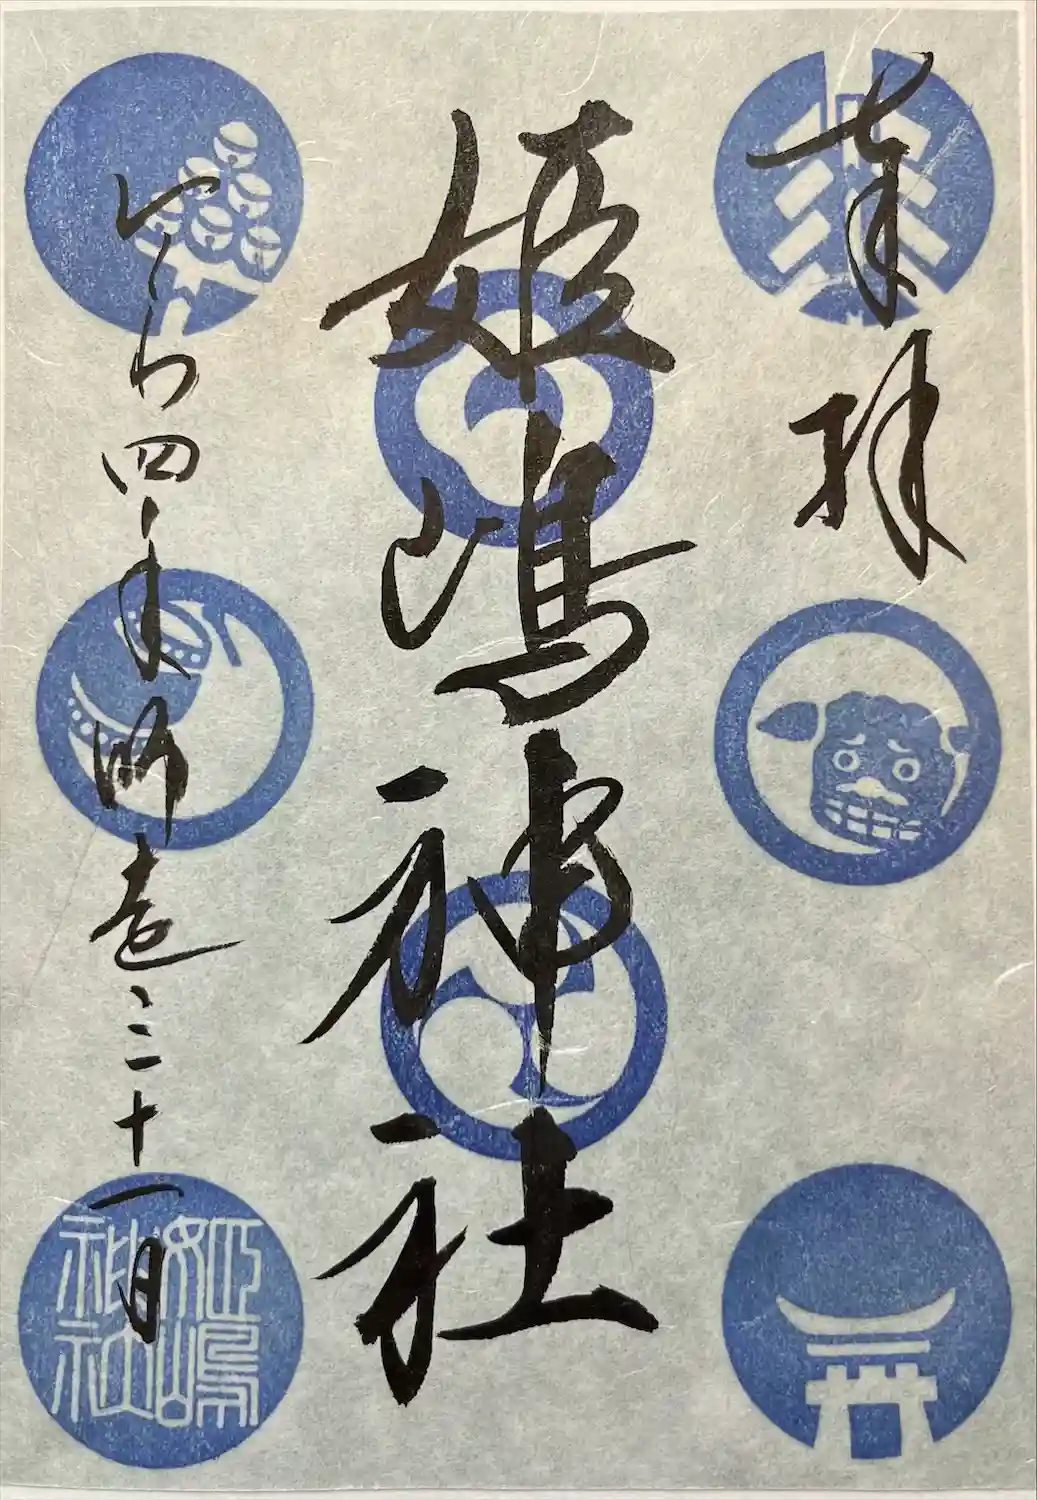 奉拝
姫嶋神社
令和四年師走三十一日
姫嶋
神社